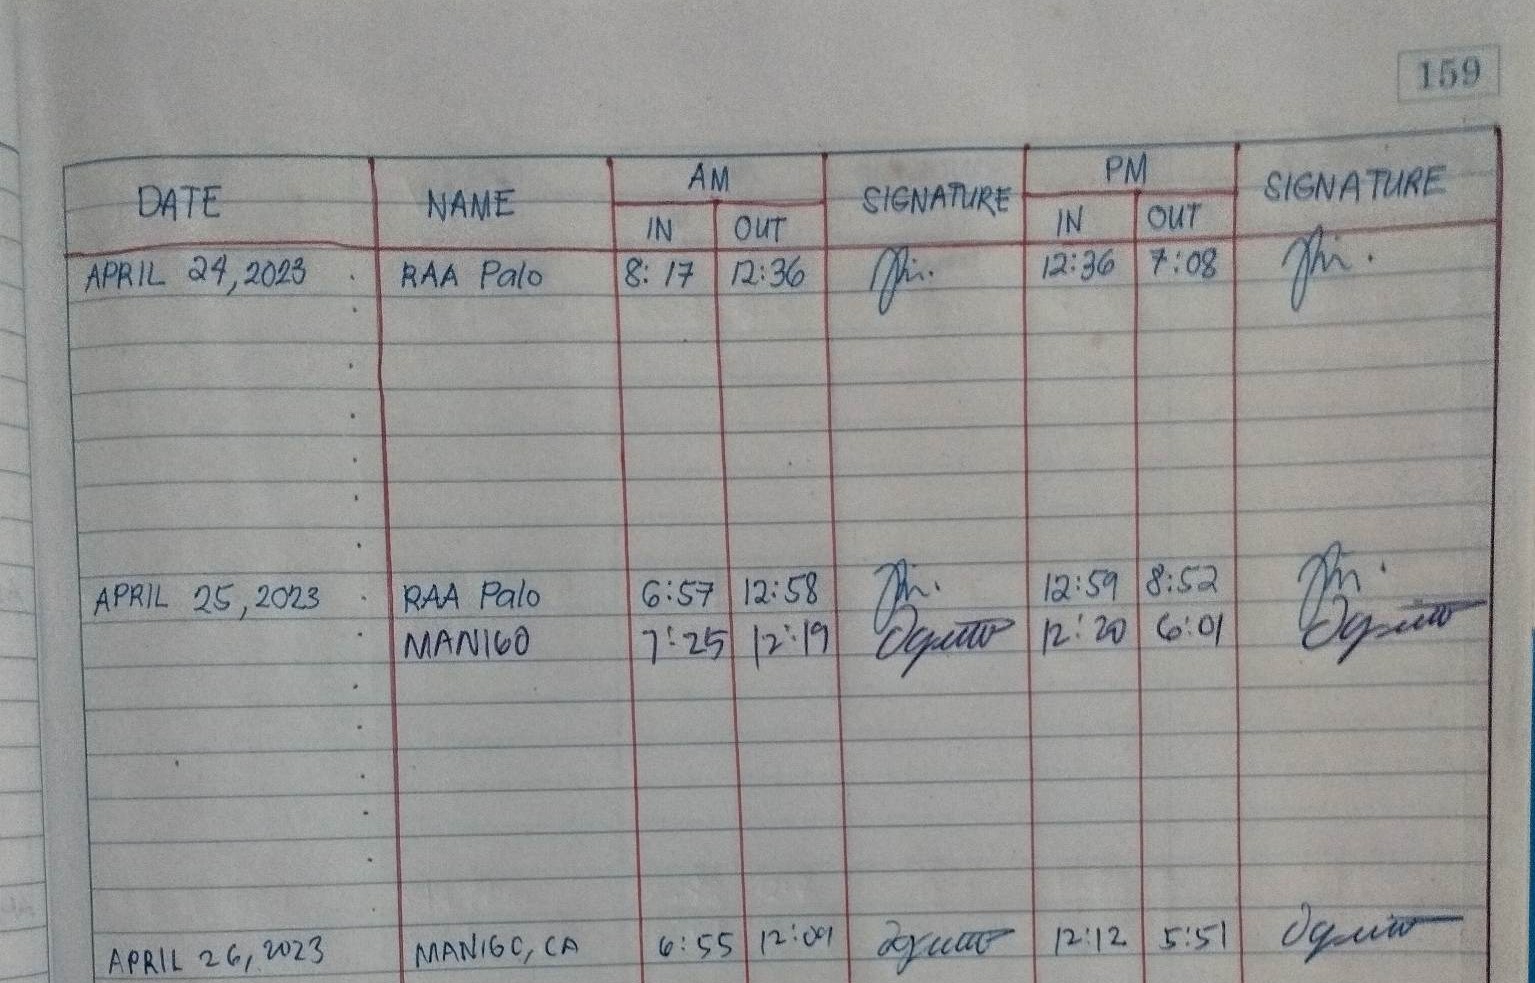 159
DATE NAME AM SIGNATURE PM SIGNATURE
IN OUT IN OUT
APRIL 24, 2023 RAA Palo 8:17 12:36 12:36 7:08
APRIL 25, 2023 RAA Palo 6:57 12:58 12:59 8:52
MANIGO 7:25 12:19 12:20 6:01
APRIL 26, 2023 MANIGO, CA 6:55 12:09 12:12 5:51